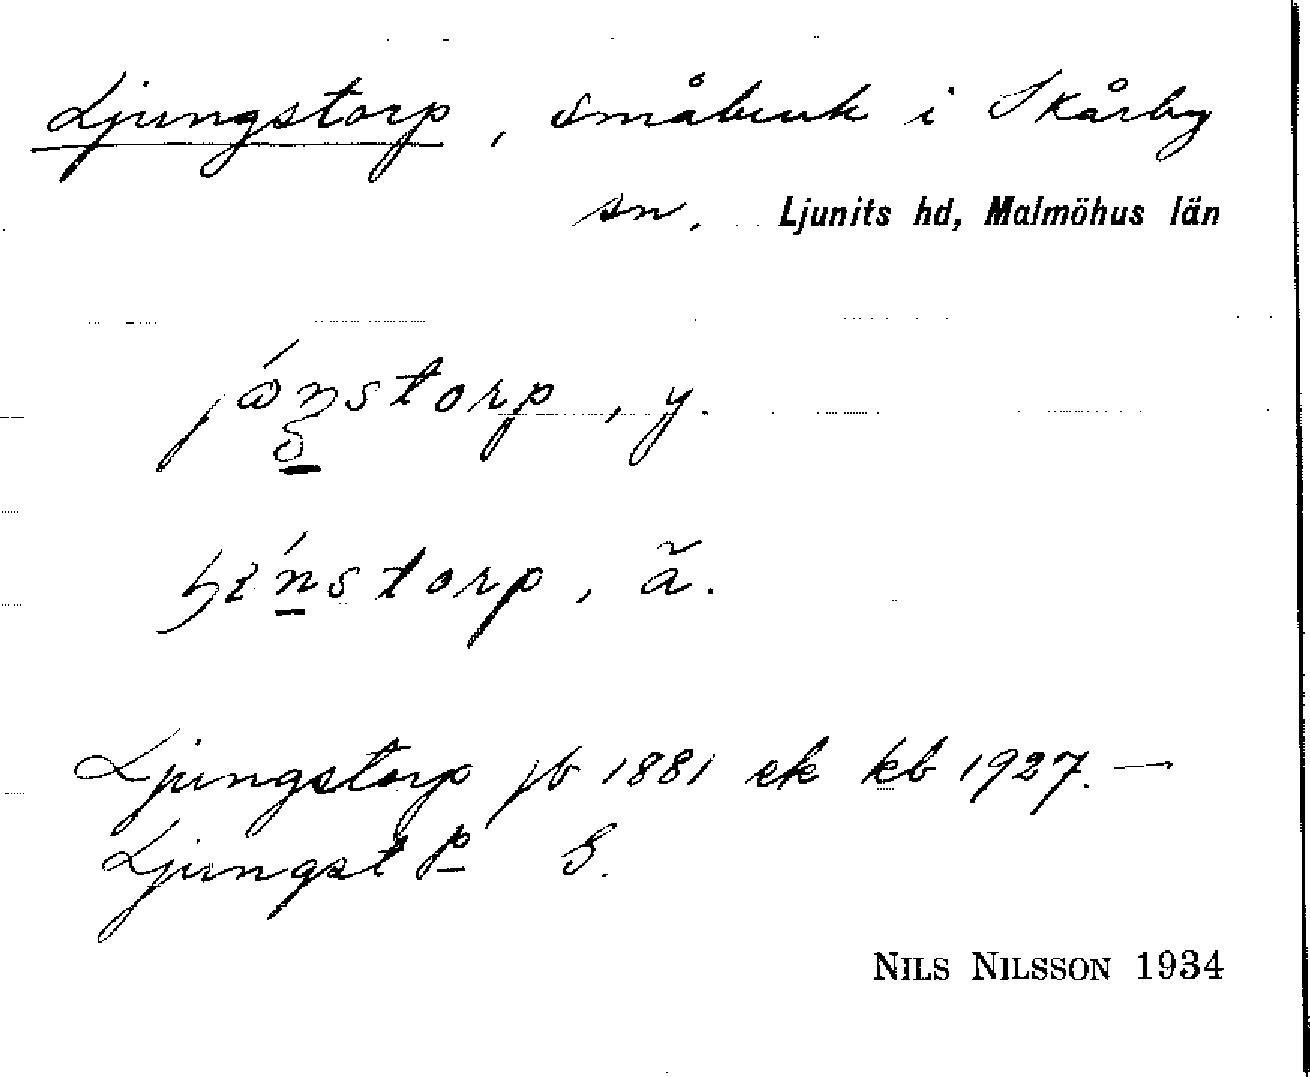 Ljungstorp, småbruk i Skårby
sn. Ljunits hd, Malmöhus län
, y.
, ã.
Ljungstorp jb 1881 ek kb 1927. —
Ljungst P S.
NILS NILSSON 1934